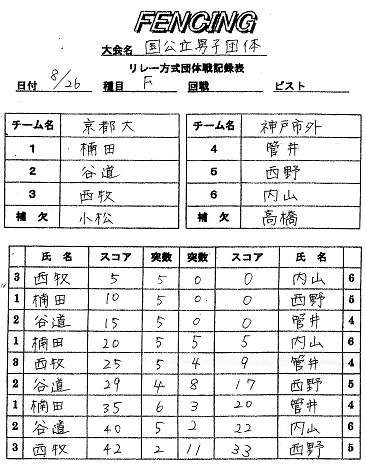 FENCING
大会名 国公立男子団体
リレー方式団体戦記録表
日付 8/26 種目 F 回戦 ピスト
チーム名 京都大 チーム名 神戸市外
1 楠田 4 管井
2 谷道 5 西野
3 西牧 6 内山
補欠 小松 補欠 高橋
氏名 スコア 突数 突数 スコア 氏名
3 西牧 5 5 0 0 内山 6
1 楠田 10 5 0 0 西野 5
2 谷道 15 5 0 0 管井 4
1 楠田 20 5 5 5 内山 6
3 西牧 25 5 4 9 管井 4
2 谷道 29 4 8 17 西野 5
1 楠田 35 6 3 20 管井 4
2 谷道 40 5 2 22 内山 6
3 西牧 42 2 11 33 西野 5